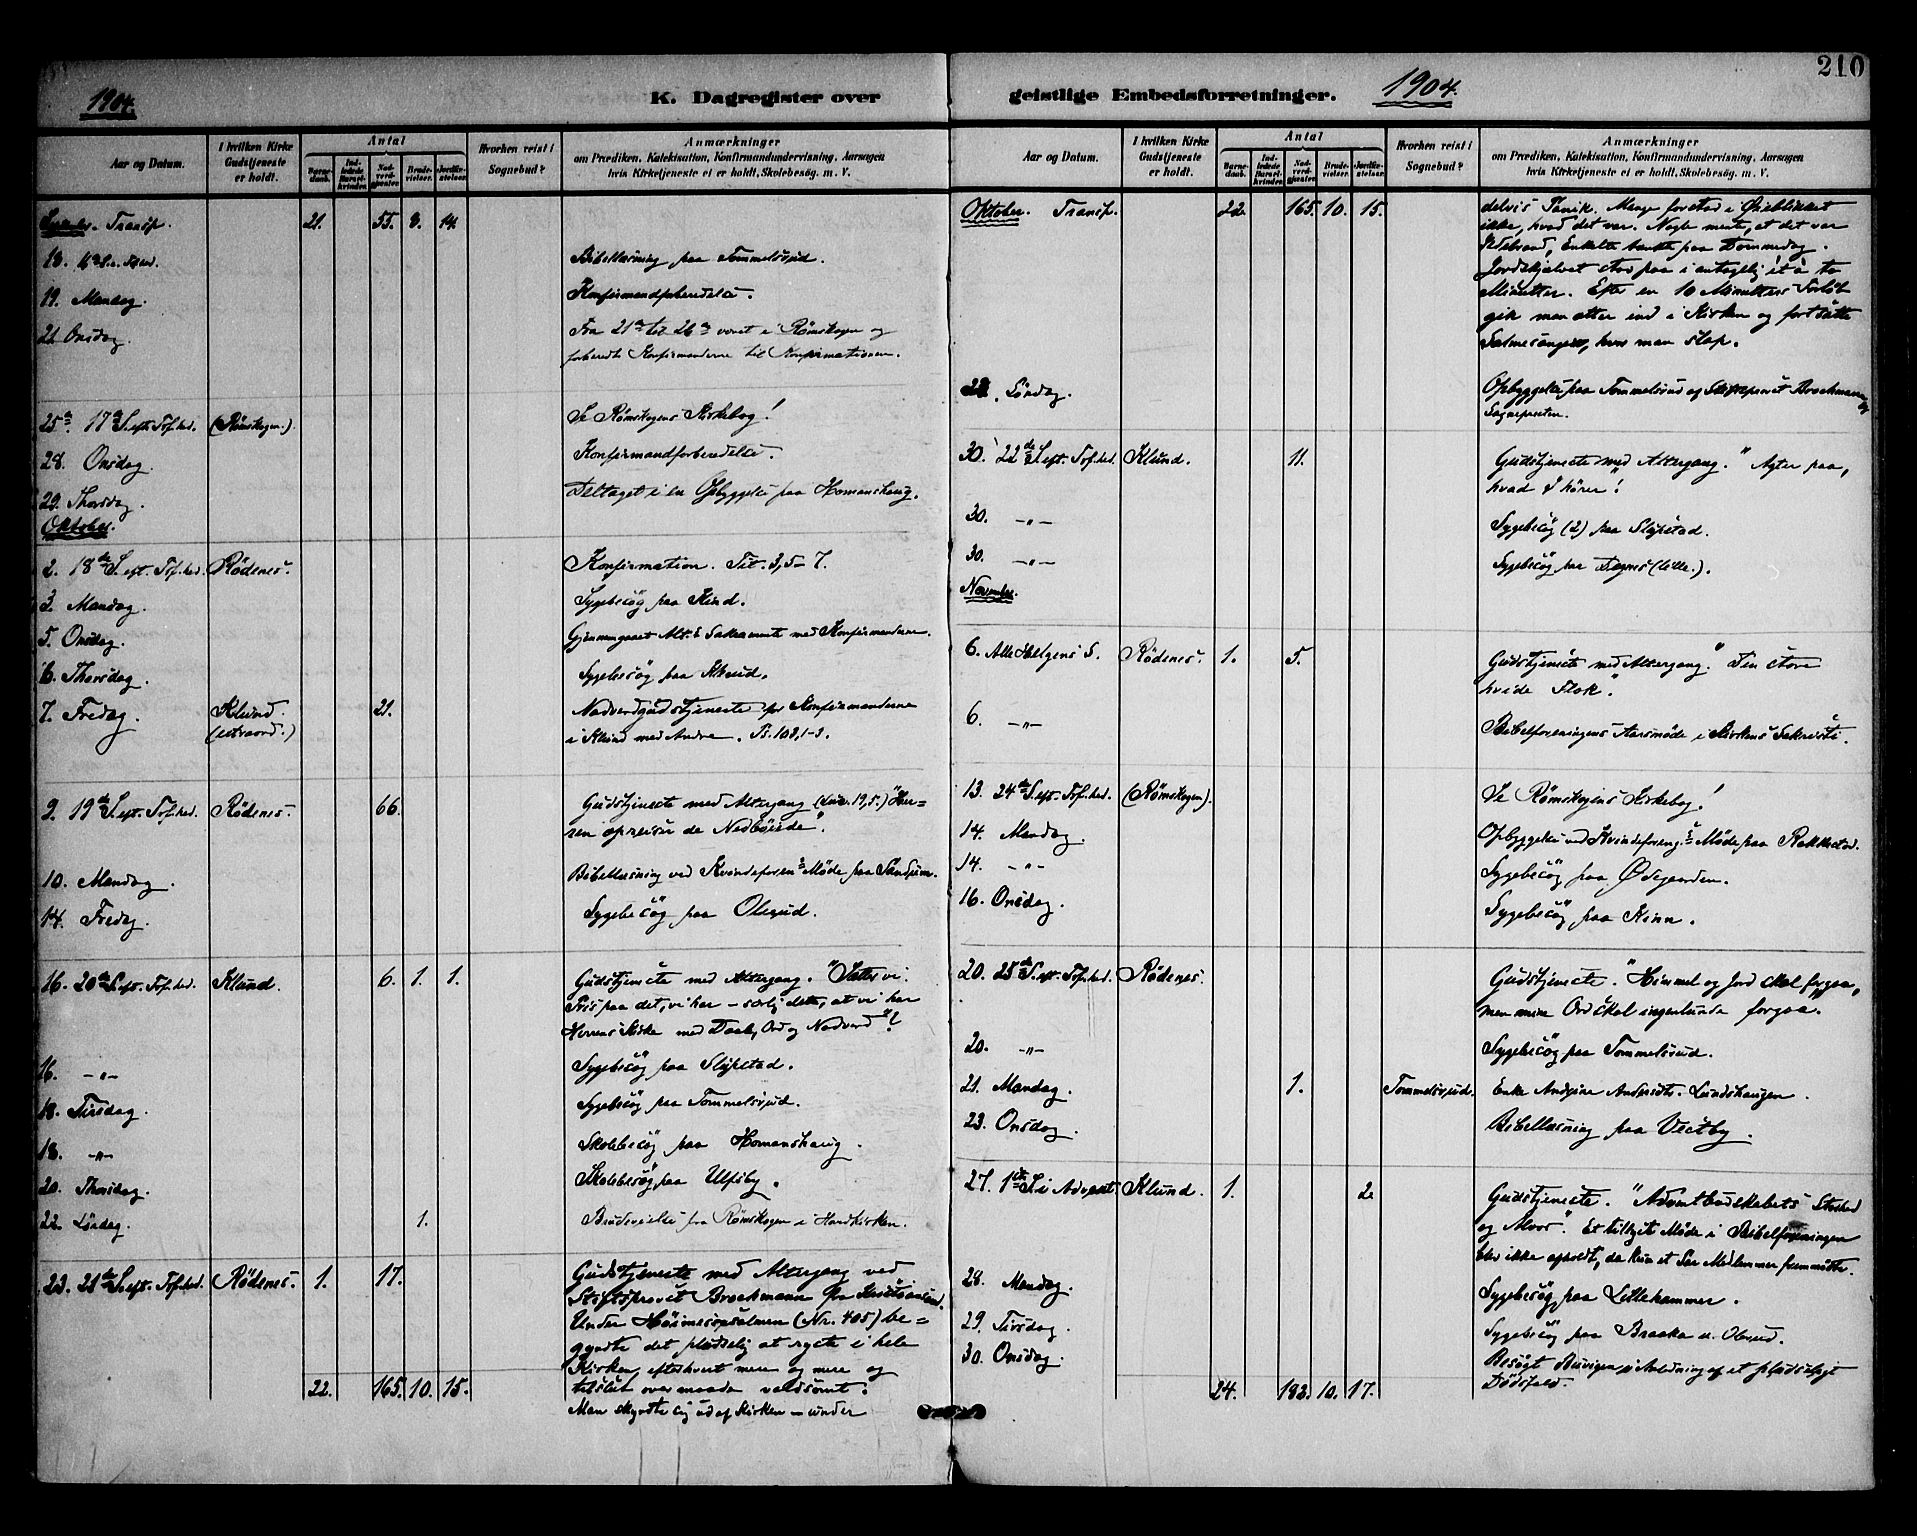 1904.
K. Dagregister over
Aar og Datum.
I hvilken Kirke Gudstjeneste er holdt.
Antal
Barnedaab.
Indledede Barselkvinder.
Nadverdgjester.
Brudevielser.
Jordfæstelser.
Hvorhen reist i Sognebud?
Anmærkninger
om Prædiken, Katekisation, Konfirmandundervisning, Aarsagen
hvis Kirketjeneste ei er holdt, Skolebesøg. m. V.
Transp. 21. 55. 8. 14.
18. 16de S. e. Tref. Bibellæsning paa Tommelsrud.
19. Mandag. Konfirmandforberedelse.
21 Onsdag. Fra 21de til 26de været i Rømskogen og
forberedt Konfirmanderne til Konfirmationen.
25de. 17de S. eft. Tref. hed. (Rømskogen.) Se Rømskogens Kirkebog!
28. Onsdag. Konfirmandforberedelse.
29. Thorsdag. Deltaget i en Opbyggelse paa Homanshaug.
Oktober.
2. 18de S. eft. Tref. hed. Rødenes. Konfirmation. Tit. 3,5-7.
3. Mandag. Sygebesøg paa Kind.
5. Onsdag. Gjennemgaaet Alt. s Sakramente med Konfirmanderne.
6. Thorsdag. Sygebesøg paa
7. Fredag. Klund. 21. Nadverdgudstjeneste for Konfirmanderne
(extraord.) i Klund med Andre. Ps. 103,1-3.
9. 19de S. eft. Tref. hed. Rødenes. 66. Gudstjeneste med Altergang "Her-
ren opreiser de Nedbøiede".
10. Mandag. Bibellæsning ved Kvindeforen.s Møde paa
14. Fredag. Sygebesøg paa Olsrud.
16. 20de S. eft. Tref. hed. Klund. 6. 1. 1. Gudstjeneste med Altergang. "Sætter vi
Pris paa det, vi har – særlig dette, at vi har
Herrens Kirke med Daab, Ord og Nadverd"?
16. -"- Sygebesøg paa Slupstad.
18. Tirsdag. Sygebesøg paa Tommelsrud.
18. -"- Skolebesøg paa Homanshaug.
20. Thorsdag. Skolebesøg paa Ulfsby.
22. Lørdag. 1. Brudevielse fra Rømskogen i Hovedkirken.
23. 21de S. eft. Tref. hed. Rødenes. 1. 17. Gudstjeneste med Altergang ved
Stiftsprovst Brockmann fra Kristiansand.
Under Høimessesalmen (Nr. 405) be-
gyndte det pludselig at ryste i hele
Kirken, efterhvert mere og mere og
tilslut overmaade voldsomt.
22. 165. 10. 15.
Man skyndte sig ud af Kirken – under
geistlige Embedsforretninger.
1904.
210
Aar og Datum.
I hvilken Kirke Gudstjeneste er holdt.
Antal
Barnedaab.
Indledede Barselkvinder.
Nadverdgjester.
Brudevielser.
Jordfæstelser.
Hvorhen reist i Sognebud?
Anmærkninger
om Prædiken, Katekisation, Konfirmandundervisning, Aarsagen
hvis Kirketjeneste ei er holdt, Skolebesøg. m. V.
Oktober. Transp. 22 165. 10. 15. delvis Panik. Mange forstod i Øieblikket
ikke, hvad det var. Nogle mente, at det var
Ildebrand, Enkelte tænkte paa Dommedag.
Jordskjælvet stod paa i antagelig 1 à to
Minutter. Efter en 10 Minutters Forløb
gik man atter ind i Kirken og fortsatte
Salmesangen, hvor man slap.
Lørdag. Opbyggelse paa Tommelsrud af Stiftsprovst Brockmann og
Sognepresten.
30. 22de S. eft. Tref. hed. Klund. 11. Gudstjeneste med Altergang. "Agter paa,
hvad I hører"!
30. -"- Sygebesøg (2) paa Slupstad.
30. -"- Sygebesøg paa (lille.).
November.
6. Alle Helgens S. Rødenes. 1. 5. Gudstjeneste med Altergang. "Den store
hvide Flok".
6. -"- Bibelforeningens Aarsmøde i Kirkens Sakristi.
13. 24de S. eft. Tref. hed. (Rømskogen). Se Rømskogens Kirkebog!
14. Mandag. Opbyggelse ved Kvindeforeng.s Møde paa Rakkestad.
14. -"- Sygebesøg paa Ødegaarden.
16. Onsdag. Sygebesøg paa Kinn.
20. 25de S. eft. Tref. hed. Rødenes. Gudstjeneste. "Himmel og Jord skal forgaa,
men mine Ord skal ingenlunde forgaa.
20. -"- Sygebesøg paa Tommelsrud.
21. Mandag. 1. Tommelsrud. Enke Andrine Andersdtr. Lundshaugen.
23. Onsdag. Bibellæsning paa Vestby.
27. 1ste S. i Advent. Klund. 1. 2 Gudstjeneste. "Adventbudskabets Storhed
og Alvor". Et tillyst Møde i Bibelforeningen
blev ikke afholdt, da kun et Par Medlemmer fremmødte.
28. Mandag. Sygebesøg paa Lillehammer.
29. Tirsdag. Sygebesøg paa Braaka u. Olsrud.
30. Onsdag. Besøgt i Anledning af et pludseligt
Dødsfald.
24. 182. 10. 17.